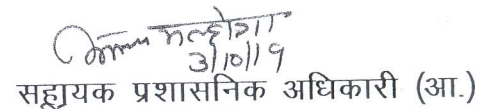 मल्होत्रा
3/10/19
सहायक प्रशासनिक अधिकारी (आ.)